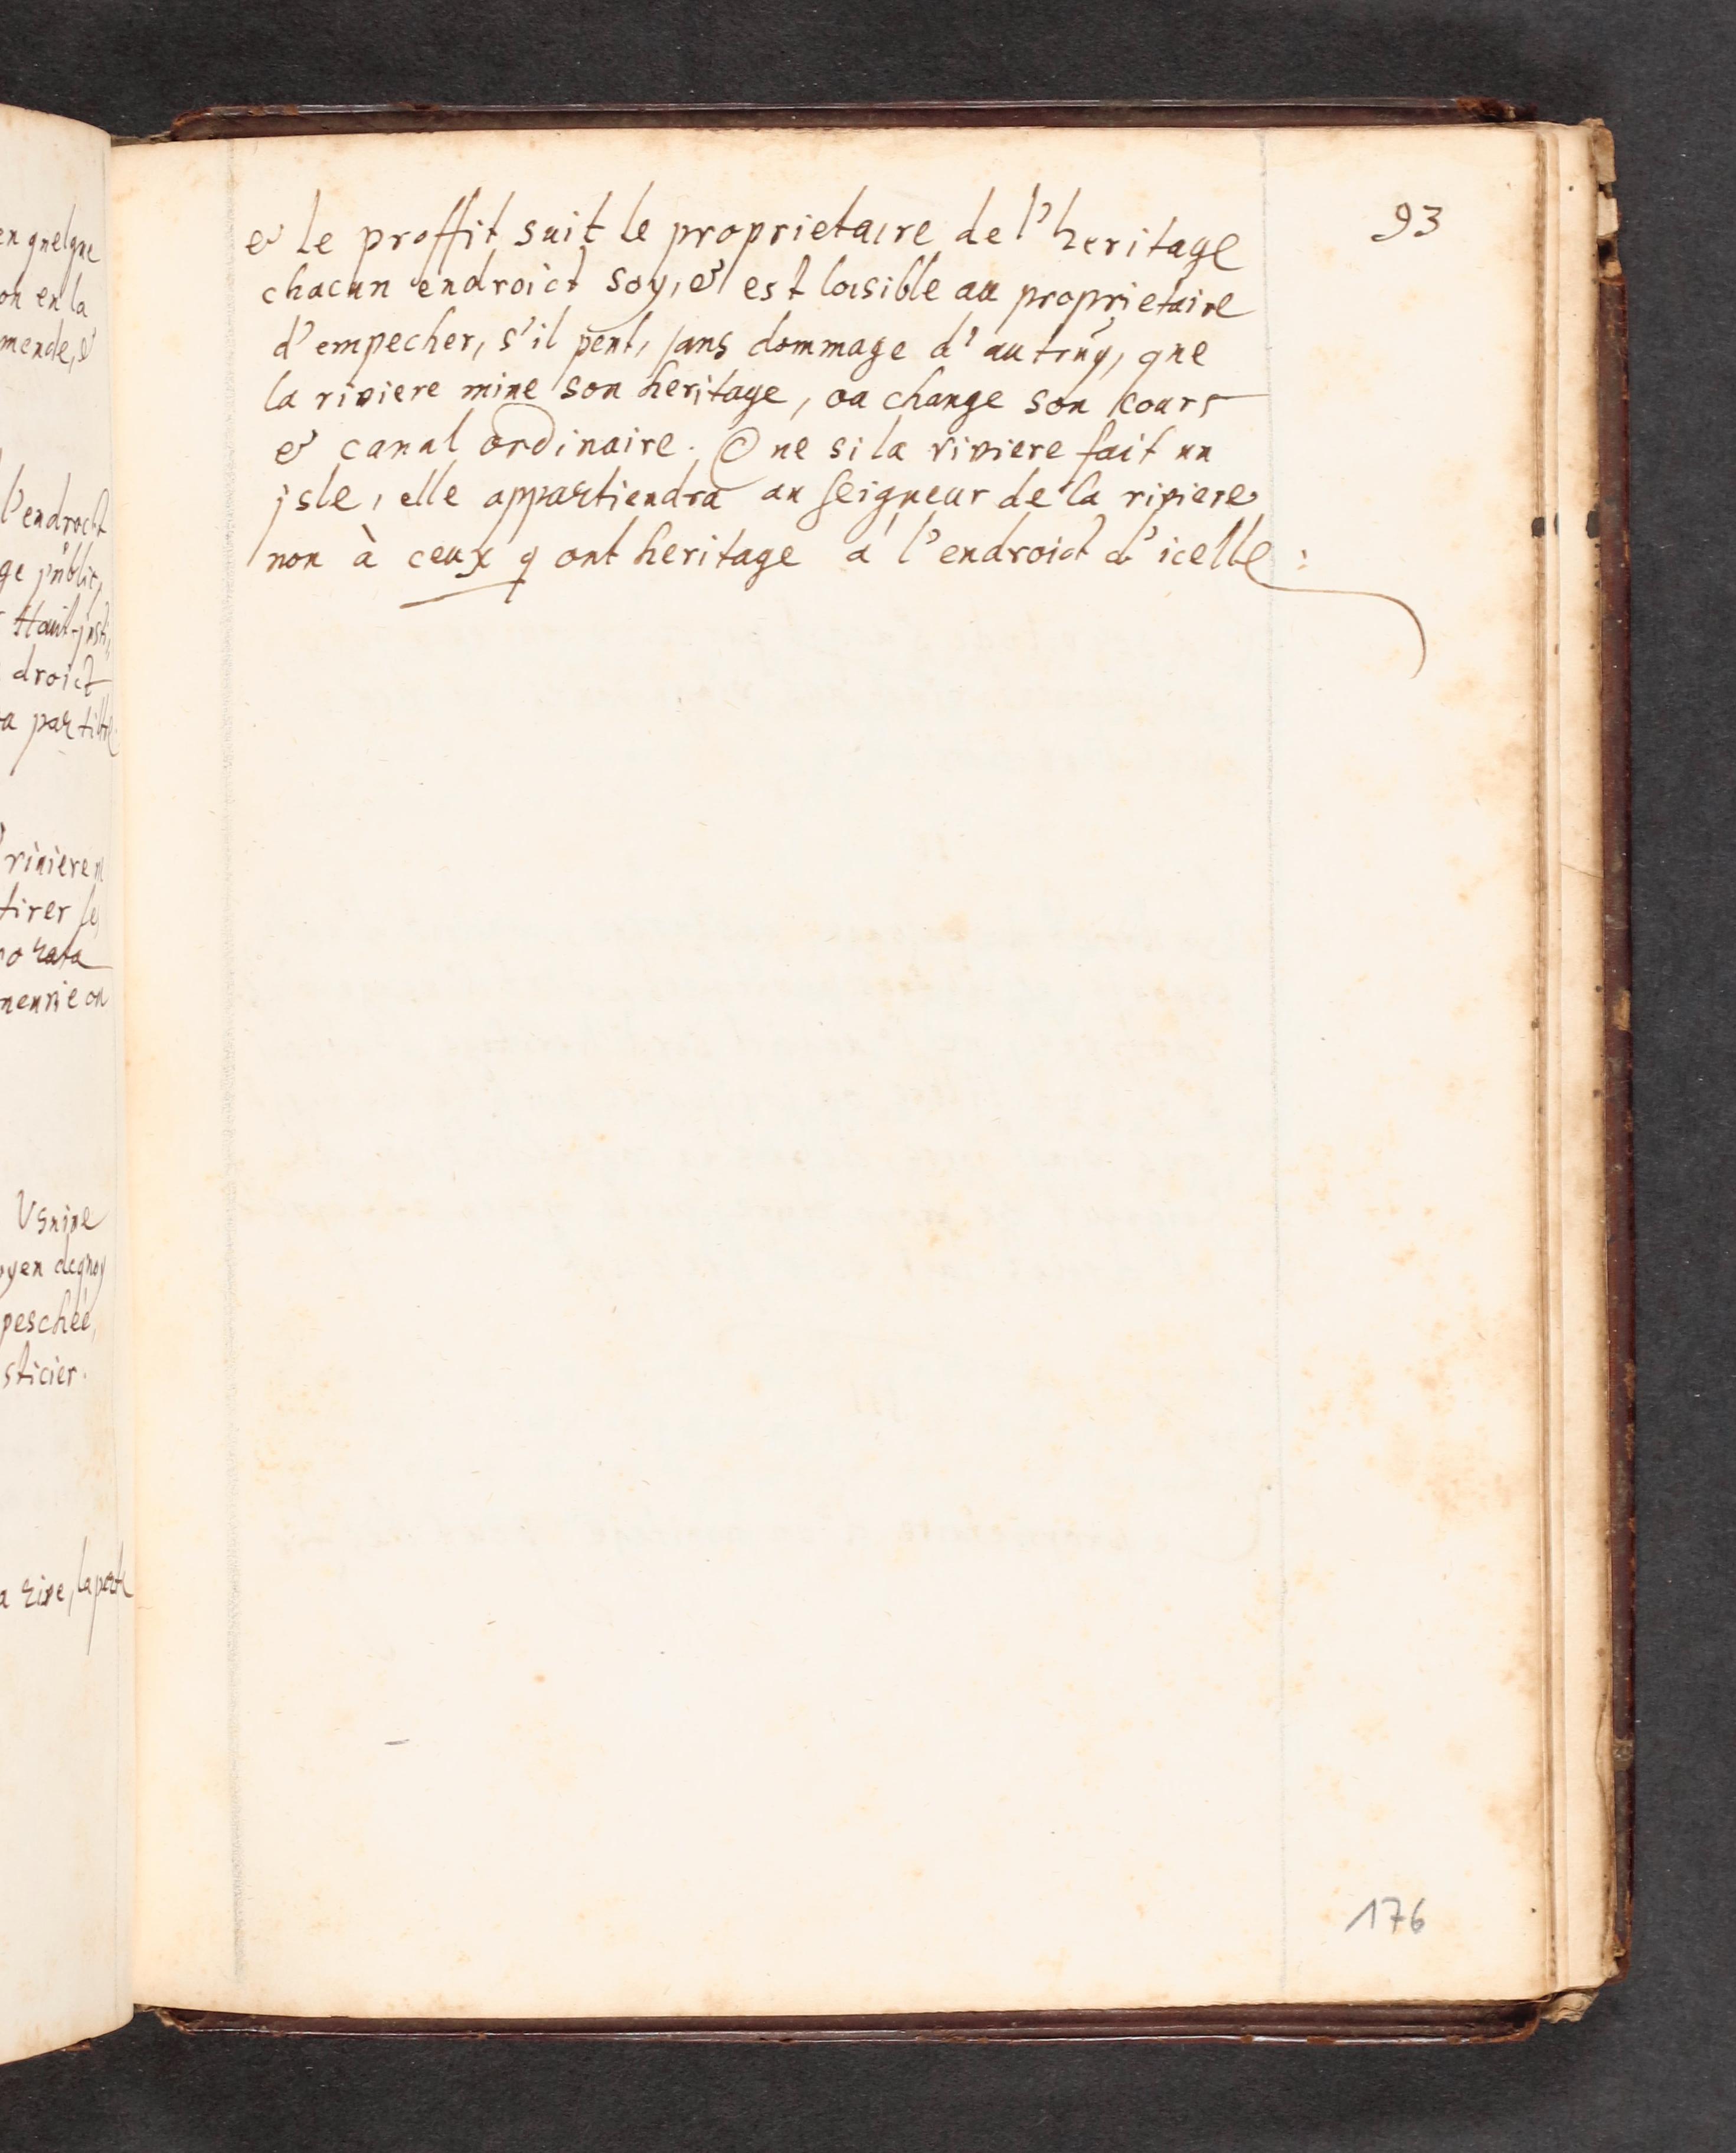 en quelque
on en la
mende, &
l'endroict
ge public,
Haut-justi,,
droict
a par tiltre
riviere n
tirer le
ro rata
neurie ou
Vsuine
oyen dequoy
peschée,
sticier.
a rive, la perte
93
& le proffit suit le proprietaire de l'heritage
chacun endroict soy, & est loisible au proprietaire
d'empecher, s'il peut, sans dommage d'autruy, que
la riviere mine son heritage, ou change son cours
& canal ordinaire. Que si la riviere fait un
jsle, elle appartiendra au seigneur de la riviere
non à ceux q ont heritage à l'endroict d'icelle :
176